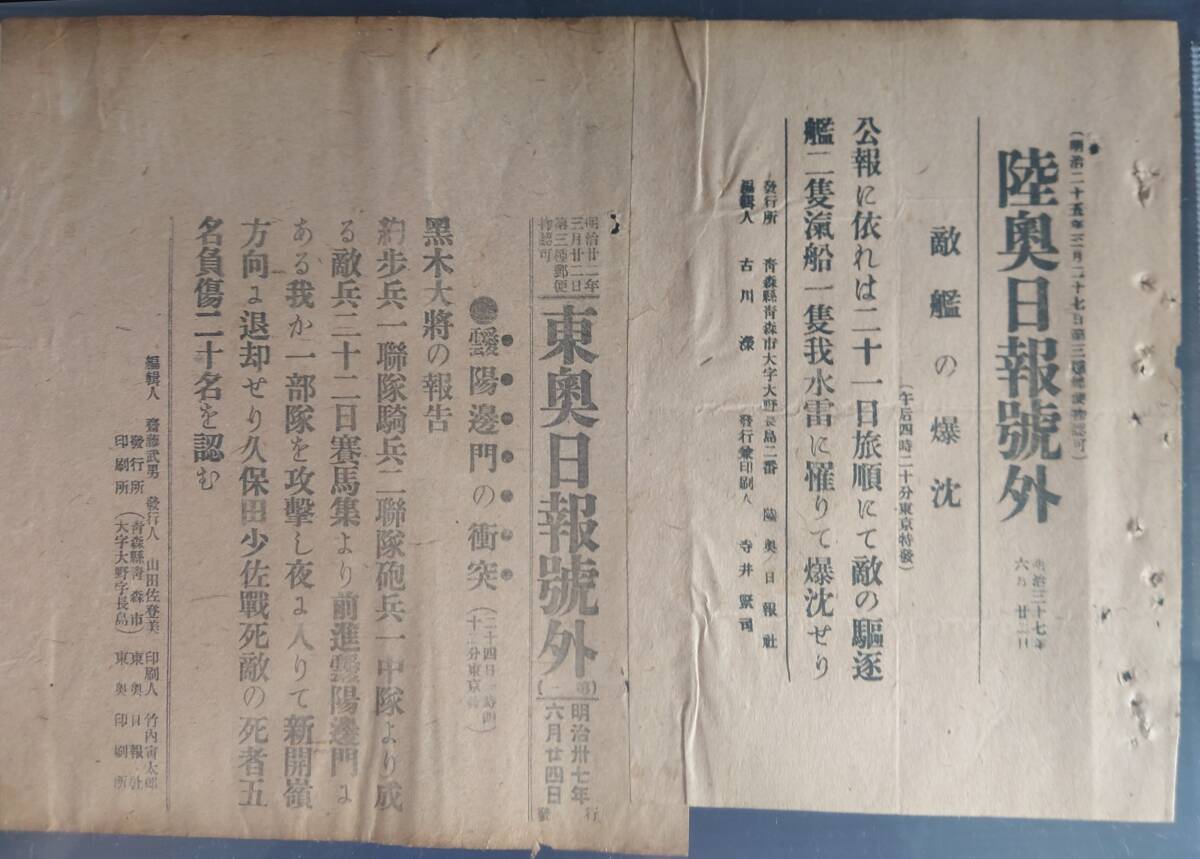 陸奥日報號外
明治三十七年
六月廿二日
敵艦の爆沈
(午后四時二十分東京特發)
公報に依れは二十一日旅順にて敵の驅逐
艦二隻滊船一隻我水雷に罹りて爆沈せり
發行所 青森縣青森市大字大野長島二番 陸奥日報社
編輯人 古川 發行兼印刷人 寺井
明治廿一年
三月廿二日
第三種郵便
物認可
東奥日報號外
明治卅七年
六月廿四日
發行
靉陽邊門の衝突
黑木大將の報告
約步兵一聯隊騎兵二聯隊砲兵一中隊より成
る敵兵二十二日賽馬集より前進靉陽邊門に
ある我か一部隊を攻擊し夜に入りて新開嶺
方向に退却せり久保田少佐戰死敵の死者五
名負傷二十名を認む
編輯人 齋藤武男 發行人 山田佐登美 印刷人 竹內寅太郎
發行所 (青森縣青森市 東奥日報社
印刷所 (大字大野字長島) 東奥印刷所